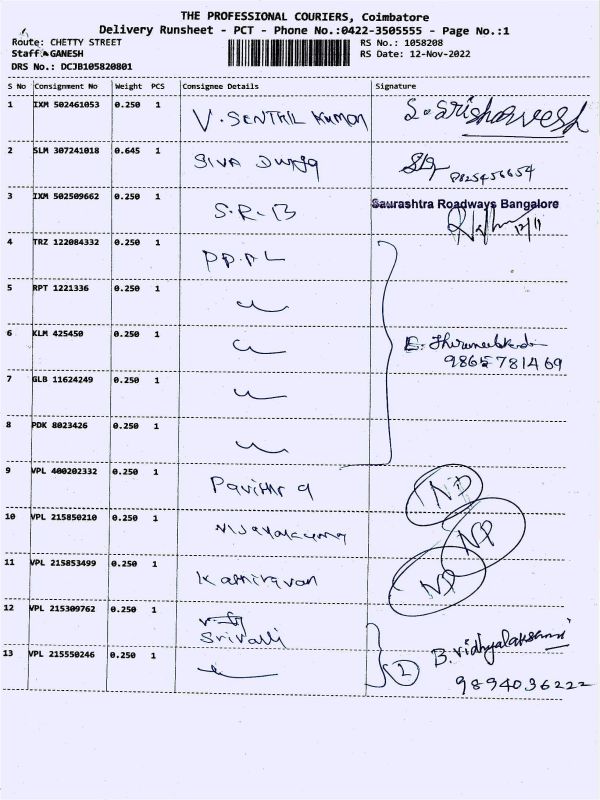 THE PROFESSIONAL COURIERS, Coimbatore
Delivery Runsheet - PCT - Phone No.:0422-3505555 - Page No.:1
Route: CHETTY STREET RS No.: 1058208
Staff: GANESH RS Date: 12-Nov-2022
DRS No.: DCJB105820801
S No Consignment No Weight PCS Consignee Details Signature
1 IXM 502461053 0.250 1 V. SENTHIL KUMAR S. Srisharvesh
2 SLM 307241018 0.645 1 SIVA DURGA
3 IXM 502509662 0.250 1 S.R-B Saurashtra Roadways Bangalore
12/11
4 TRZ 122084332 0.250 1 PP.PL
5 RPT 1221336 0.250 1
6 KLM 425450 0.250 1 E.
9865781469
7 GLB 11624249 0.250 1
8 PDK 8023426 0.250 1
9 VPL 400202332 0.250 1 Pavithra NP
10 VPL 215850210 0.250 1 Vijayakumar NP
11 VPL 215853499 0.250 1 Kathiravan NP
12 VPL 215309762 0.250 1 Srivalli
13 VPL 215550246 0.250 1 2 B. Vidhyalakshmi
9894036222